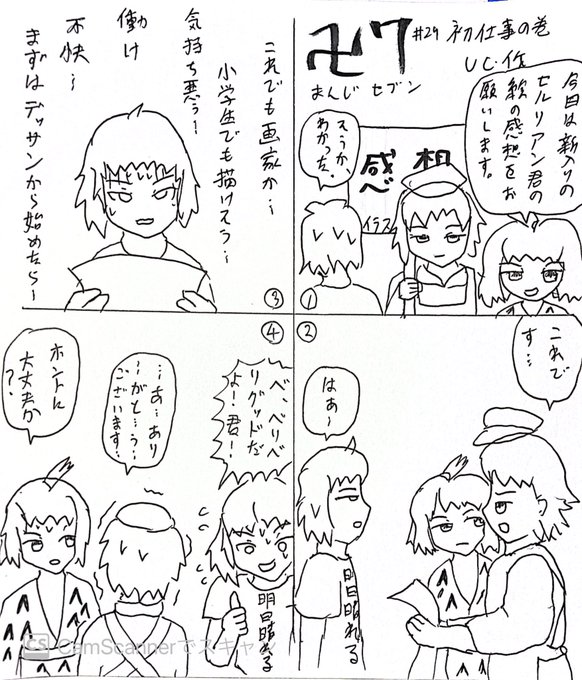 卍7
#29 初仕事の巻
UC作
まんじ セブン
今日は新入りの
セルリアン君の
絵の感想をお
願いします。
感想
べ
イラス
そうか、
わかった。
①
②
これで
す…
はぁ〜
明日晴れる
これでも画家か…
小学生でも描けそう…
気持ち悪う…
働け
不快…
まずはデッサンから始めたら〜
③
④
べ、べリベ
リグッドだ
よ!君!
明日晴れる
…あ…あり
〜がと…う…
ございます…
ホントに
大丈夫か
?
CS CamScannerでスキャン